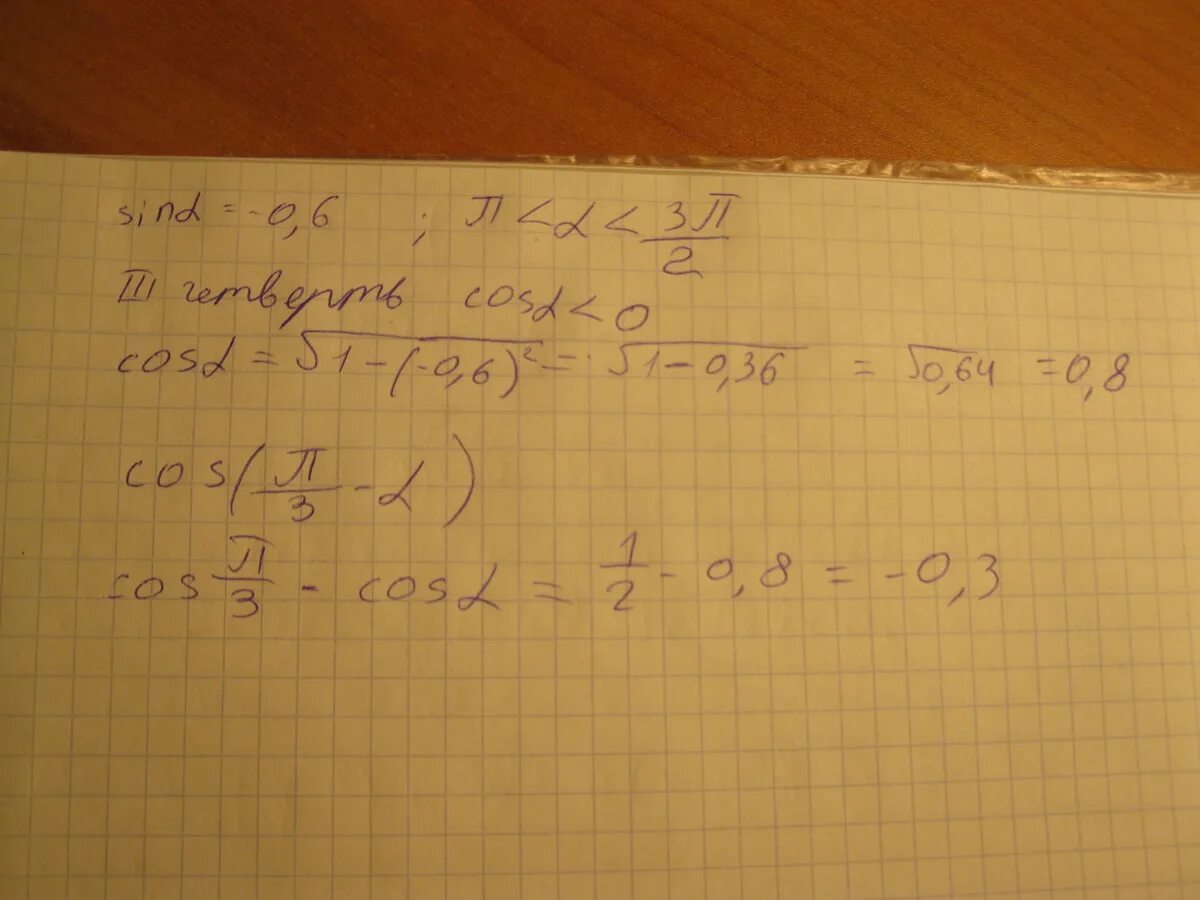 sinα = -0,6 ; π < α < 3π/2
III четверть cosα < 0
cosα = √1-(-0,6)² = √1-0,36 = √0,64 = 0,8
cos(π/3 - α)
cos π/3 - cosα = 1/2 - 0,8 = -0,3